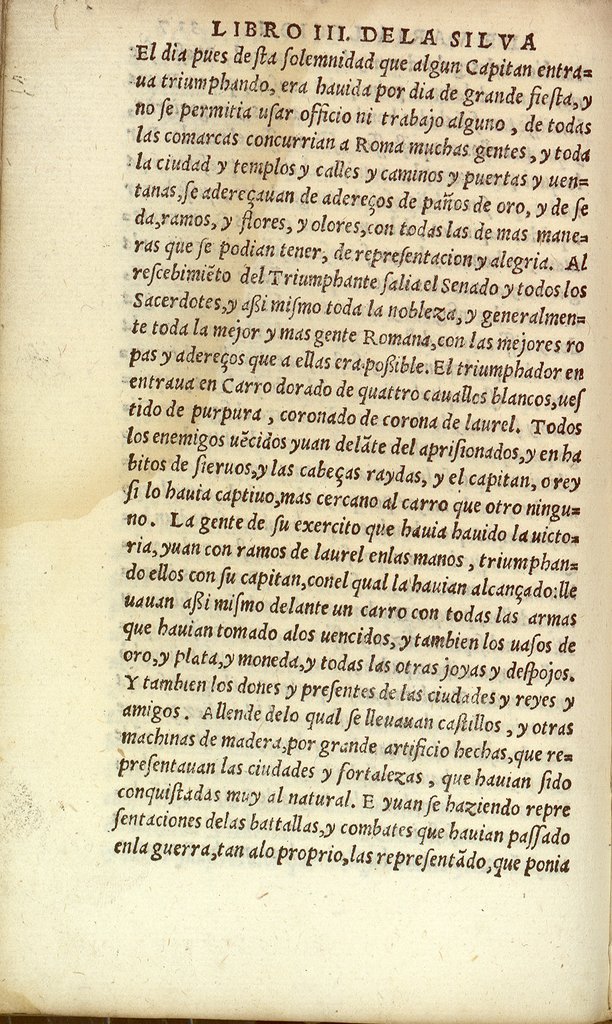 LIBRO III. DELA SILVA
El dia pues deſta ſolemnidad que algun Capitan entra=
ua triumphando, era hauida por dia de grande fieſta, y
no ſe permitia uſar officio ni trabajo alguno, de todas
las comarcas concurrian a Roma muchas gentes, y toda
la ciudad y templos y calles y caminos y puertas y uen=
tanas, ſe adereçauan de adereços de paños de oro, y de ſe
da, ramos, y flores, y olores, con todas las de mas mane=
ras que ſe podian tener, de repreſentacion y alegria. Al
reſcebimiēto del Triumphante ſalia el Senado y todos los
Sacerdotes, y aßi miſmo toda la nobleza, y generalmen=
te toda la mejor y mas gente Romana, con las mejores ro
pas y adereços que a ellas era poßible. El triumphador en
entraua en Carro dorado de quattro cauallos blancos, ueſ
tido de purpura, coronado de corona de laurel. Todos
los enemigos uēcidos yuan delāte del apriſionados, y en ha
bitos de ſieruos, y las cabeças raydas, y el capitan, o rey
ſi lo hauia captiuo, mas cercano al carro que otro ningu=
no. La gente de ſu exercito que hauia hauido la uicto=
ria, yuan con ramos de laurel enlas manos, triumphan=
do ellos con ſu capitan, conel qual la hauian alcançado: lle
uauan aßi miſmo delante un carro con todas las armas
que hauian tomado alos uencidos, y tambien los uaſos de
oro, y plata, y moneda, y todas las otras joyas y deſpojos.
Y tambien los dones y preſentes de las ciudades y reyes y
amigos. Allende delo qual ſe lleuauan caſtillos, y otras
machinas de madera, por grande artificio hechas, que re=
preſentauan las ciudades y fortalezas, que hauian ſido
conquiſtadas muy al natural. E yuan ſe haziendo repre
ſentaciones delas battallas, y combates que hauian paſſado
enla guerra, tan alo proprio, las repreſentādo, que ponia